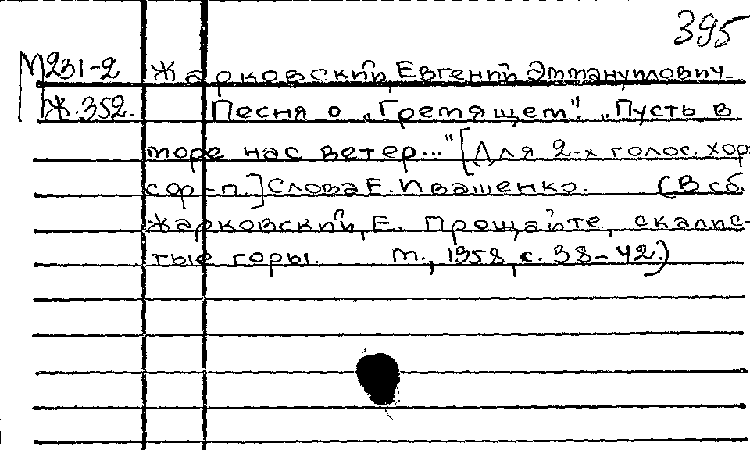 395
М231-2 Жарковский, Евгений Эммануилович.
Ж.352. Песня о „Гремящем". „Пусть в
море нас ветер..." [Для 2-х голос. хор
с ф-п.] Слова Е. Иващенко. (В сб.
Жарковский, Е. Прощайте, скалис-
тые горы. М., 1958, с. 38-42.)